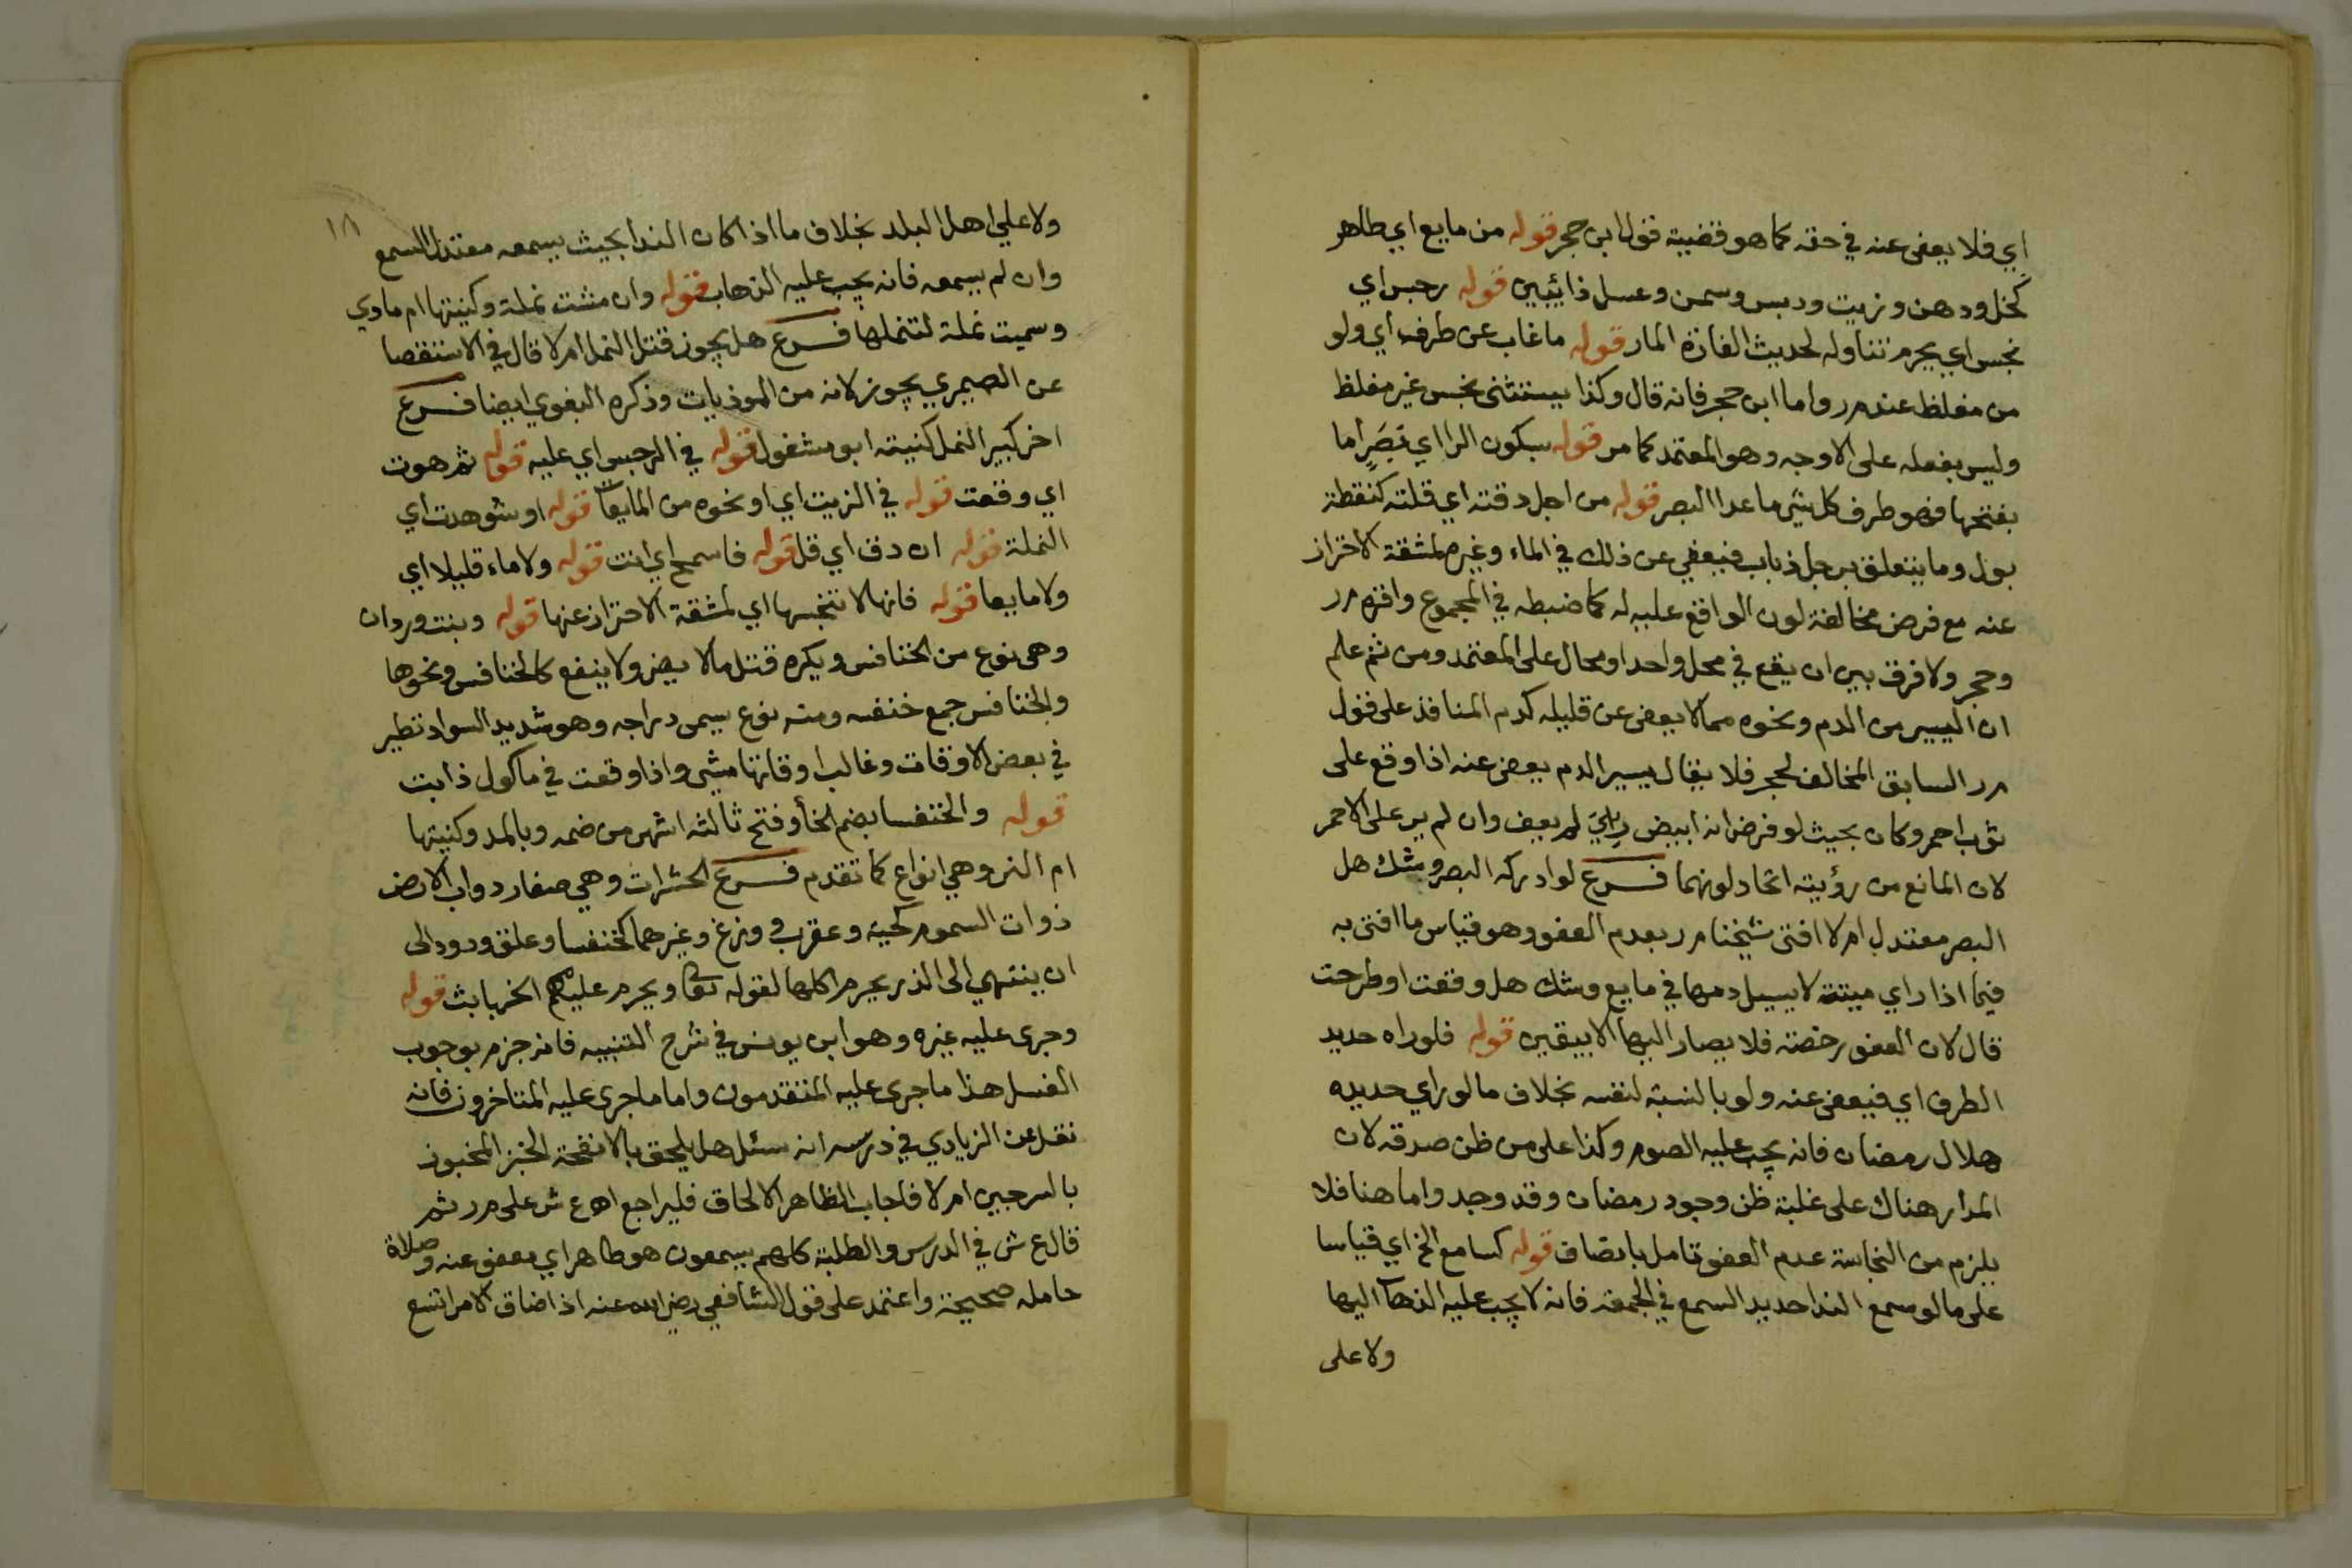 اي فلا يعفى عنه في حقه كما هو قضية قول ابن حجر قوله من مايع اي طاهر
كخل ودهن وزيت ودبس وسمن وعسل ذائبين قوله رجس اي
نجس اي يحرم تناوله لحديث الفارة المار قوله ما غاب عن طرف اي ولو
من مغلظ عند مر واما ابن حجر فانه قال وكذا يستثنى نجس غير مغلظ
وليس بفعله على الاوجه وهو المعتمد كما مر قوله بسكون الرا اي بصر اما
بفتحها فهو طرف كل شي ما عدا البصر قوله من اجل دقته اي قلته كنقطة
بول وما يتعلق برجل ذباب فيعفي عن ذلك في الماء وغيره لمشقة الاحتراز
عنه مع فرض مخالفة لون الواقع عليه له كما ضبطه في المجموع واقره مر
وحجر ولا فرق بين ان يقع في محل واحد او محال على المعتمد ومن ثم علم
ان اليسير من الدم ونحوه مما لا يعفى عن قليله كدم المنافذ على قول
مر السابق المخالف لحجر فلا يقال يسير الدم يعفى عنه اذا وقع على
ثوب احمر وكان بحيث لو فرض انه ابيض ريي لم يعف وان لم ير على الاحمر
لان المانع من رؤيته اتحاد لونهما فرع لو ادركه البصر وشك هل
البصر معتدل ام لا افتى شيخنا مر بعدم العفو وهو قياس ما افتى به
فيما اذا راي ميتة لا يسيل دمها في مايع وشك هل وقعت او طرحت
قال لان العفو رخصة فلا يصار اليها الا بيقين قوله فلو راه حديد
الطرف اي فيعفى عنه ولو بالنسبة لنفسه بخلاف ما لو راي حديده
هلال رمضان فانه يجب عليه الصوم وكذا على من ظن صدقه لان
المدار هناك على غلبة ظن وجود رمضان وقد وجد واما هنا فلا
يلزم من النجاسة عدم العفو تامل بانصاف قوله كسامع الخ اي قياسا
على ما لو سمع الندا حديد السمع في الجمعة فانه لا يجب عليه الذهاب اليها
ولا على
١٨
ولا علي اهل البلد بخلاف ما اذا كان الندا بحيث يسمعه معتدل السمع
وان لم يسمعه فانه يجب عليه الذهاب قوله وان مشت نملة وكنيتها ام مادي
وسميت نملة لتنملها فرع هل يجوز قتل النمل ام لا قال في الاستقصا
عن الصيمري يجوز لانه من الموذيات وذكره البغوي ايضا فرع
اخر كبير النمل كنيته ابو مشغول قوله في الرجس اي عليه قوله ثم هوت
اي وقعت قوله في الزيت اي او نحوه من المايعات قوله او شوهدت اي
النملة قوله ان دق اي قل قوله فاسمح اي انت قوله ولا ماء قليلا اي
ولا مايعا قوله فانها لا تنجسها اي لمشقة الاحتراز عنها قوله وبنت وردان
وهي نوع من الخنافس ويكره قتل ما لا يضر ولا ينفع كالخنافس ونحوها
والخنافس جمع خنفسه ومنه نوع يسمى دراجه وهو شديد السواد تطير
في بعض الاوقات وغالب اوقاتها مشي واذا وقعت في ماكول ذابت
قوله والخنفسا بضم الخا وفتح ثالثه اشهر من ضمه وبالمد وكنيتها
ام النر وهي انواع كما تقدم فرع الحشرات وهي صغار دواب الارض
ذوات السموم كحية وعقرب ووزغ وغيرهما كخنفسا وعلق ودود الى
ان ينتهي الى الذر يحرم اكلها لقوله تعا ويحرم عليهم الخبايث قوله
وجرى عليه غيره وهو ابن يونس في شرح التنبيه فانه جزم بوجوب
الغسل هذا ما جرى عليه المتقدمون واما ما جرى عليه المتاخرون فانه
نقل عن الزيادي في درسه انه سئل هل يلحق بالانفحة الخبز المخبوز
بالسرجين ام لا فاجاب الظاهر الالحاق فليراجع اه ع ش على مر ثم
قال ع ش في الدرس والطلبة كلهم يسمعون هو طاهر اي معفو عنه وصلاة
حامله صحيحة واعتمد على قول الشافعي رضي الله عنه اذا ضاق الامر اتسع